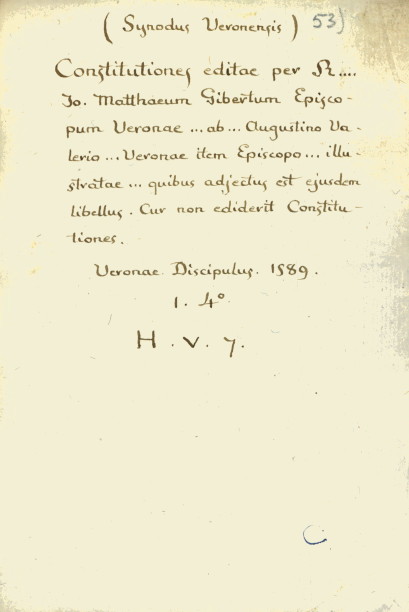 (Synodus Veronensis) 53)
Constitutiones editae per R....
Jo. Matthaeum Gibertum Episco-
pum Veronae ... ab ... Augustino Va-
lerio ... Veronae item Episcopo ... illu-
stratae ... quibus adjectus est ejusdem
libellus. Cur non ediderit Constitu-
tiones.
Veronae Discipulus. 1589.
1. 4°
H. V. 7.
C